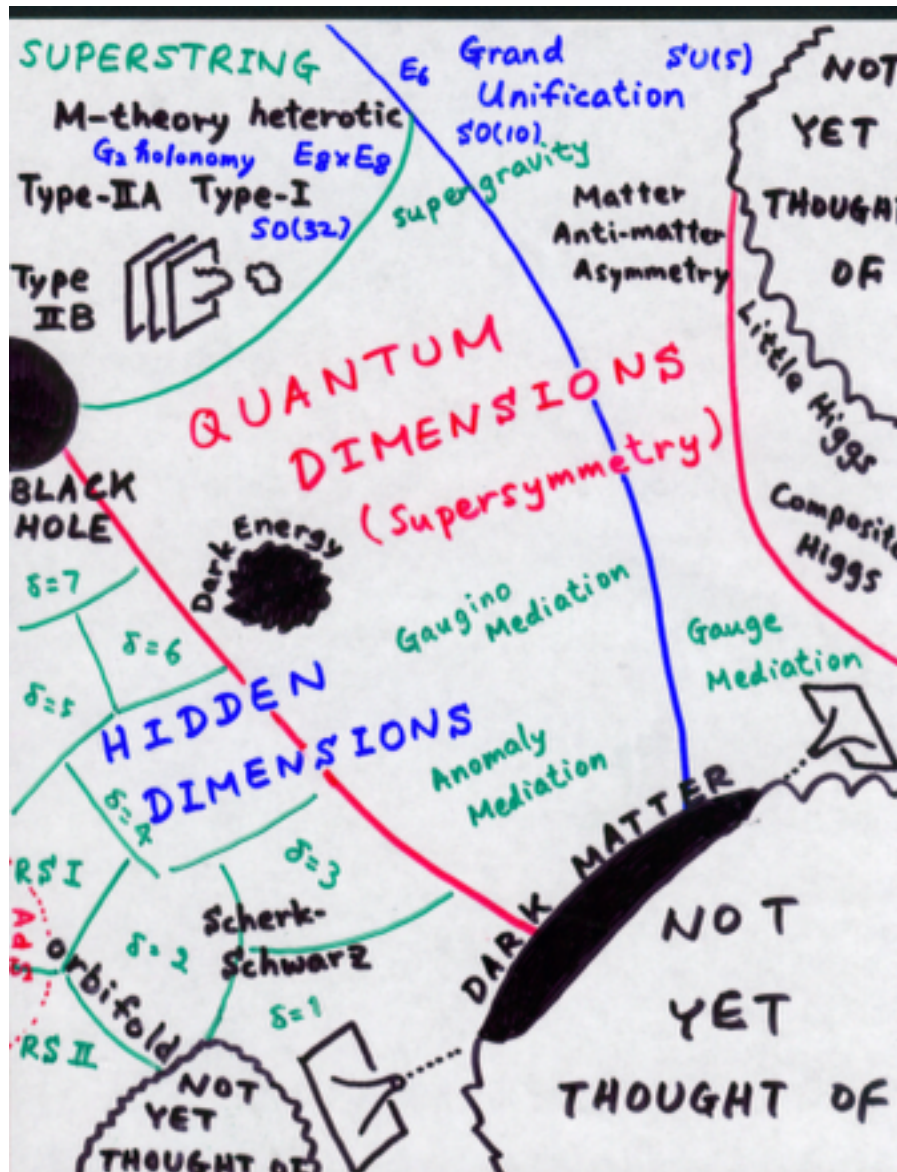 SUPERSTRING
M-theory heterotic
G₂ holonomy E8xE8
Type-IIA Type-I
SO(32)
Type
IIB
E₆
Grand
Unification
SU(5)
SO(10)
supergravity
Matter
Anti-matter
Asymmetry
NOT
YET
THOUGHT
OF
Little Higgs
Composite
Higgs
QUANTUM
DIMENSIONS
(Supersymmetry)
BLACK
HOLE
Dark Energy
Gaugino
Mediation
Gauge
Mediation
Anomaly
Mediation
δ=7
δ=6
δ=5
HIDDEN
DIMENSIONS
δ=4
δ=3
RS I
AdS
orbifold
δ=2
Scherk-
Schwarz
δ=1
RS II
DARK MATTER
NOT
YET
THOUGHT OF
NOT
YET
THOUGHT OF